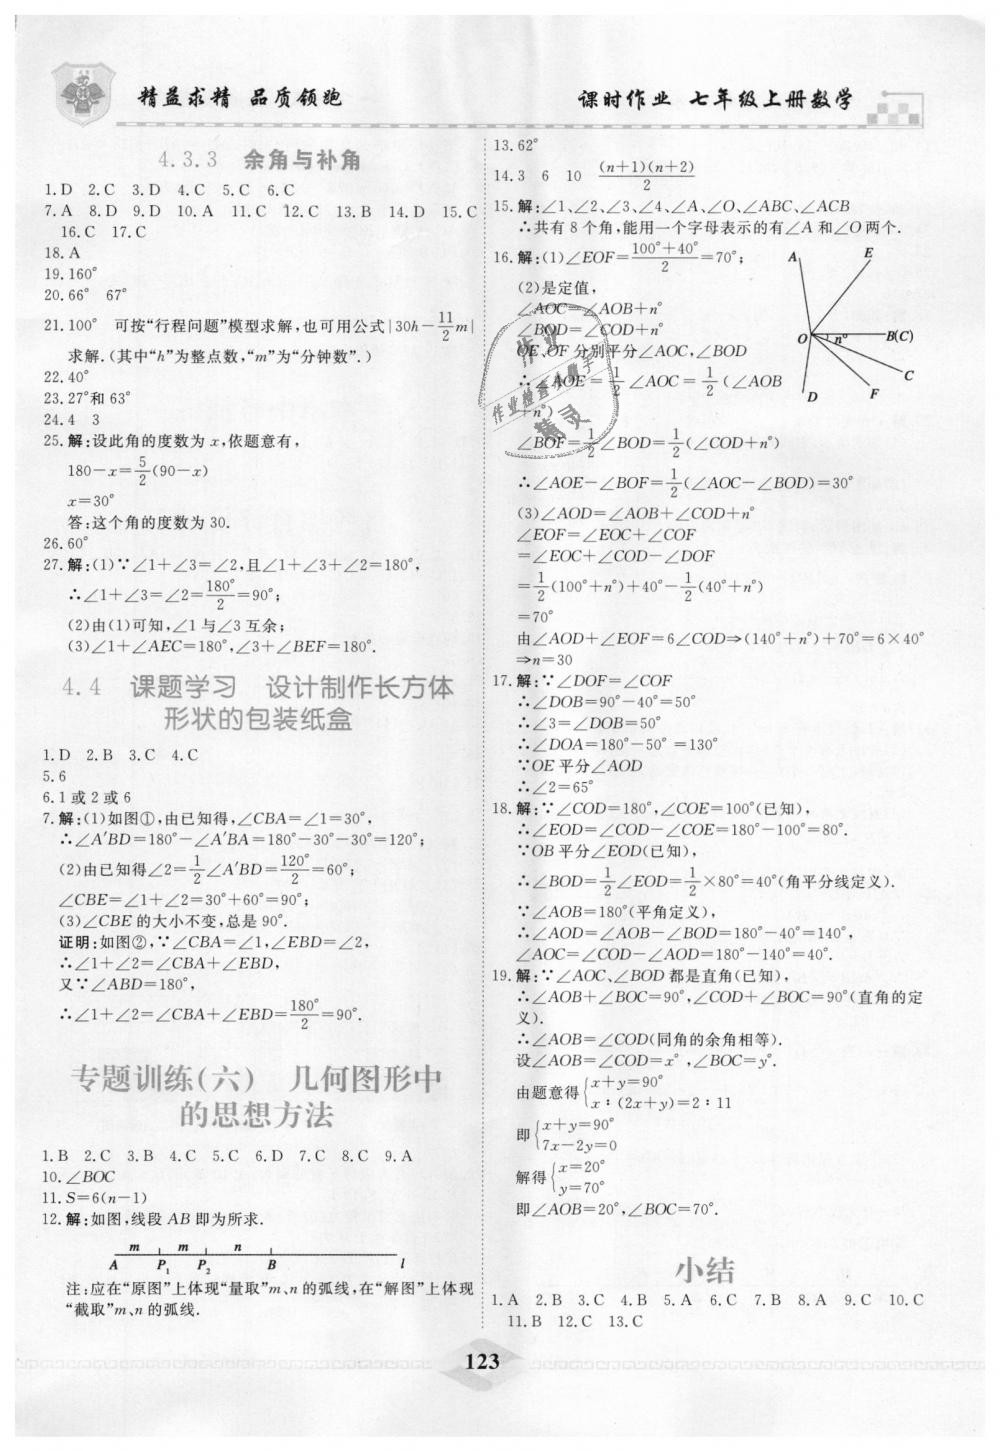 精益求精 品质领跑
课时作业 七年级上册数学
4.3.3 余角与补角
1.D 2.C 3.D 4.C 5.C 6.C
7.A 8.D 9.D 10.A 11.C 12.C 13.B 14.D 15.C
16.C 17.C
18.A
19.160°
20.66° 67°
21.100° 可按“行程问题”模型求解,也可用公式|30h-11/2m|
求解.(其中“h”为整点数,“m”为“分钟数”.)
22.40°
23.27°和63°
24.4 3
25.解:设此角的度数为x,依题意有,
180-x=5/2(90-x)
x=30°
答:这个角的度数为30.
26.60°
27.解:(1)∵∠1+∠3=∠2,且∠1+∠3+∠2=180°,
∴∠1+∠3=∠2=180°/2=90°;
(2)由(1)可知,∠1与∠3互余;
(3)∠1+∠AEC=180°,∠3+∠BEF=180°.
4.4 课题学习 设计制作长方体
形状的包装纸盒
1.D 2.B 3.C 4.C
5.6
6.1或2或6
7.解:(1)如图①,由已知得,∠CBA=∠1=30°,
∴∠A′BD=180°-∠A′BA=180°-30°-30°=120°;
(2)由已知得∠2=1/2∠A′BD=120°/2=60°;
∠CBE=∠1+∠2=30°+60°=90°;
(3)∠CBE的大小不变,总是90°.
证明:如图②,∵∠CBA=∠1,∠EBD=∠2,
∴∠1+∠2=∠CBA+∠EBD,
又∵∠ABD=180°,
∴∠1+∠2=∠CBA+∠EBD=180°/2=90°.
专题训练(六) 几何图形中
的思想方法
1.B 2.C 3.B 4.C 5.C 6.D 7.C 8.C 9.A
10.∠BOC
11.S=6(n-1)
12.解:如图,线段AB即为所求.
m m n
A P1 P2 B l
注:应在“原图”上体现“量取”m、n的弧线,在“解图”上体现
“截取”m、n的弧线.
13.62°
14.3 6 10 (n+1)(n+2)/2
15.解:∠1、∠2、∠3、∠4、∠A、∠O、∠ABC、∠ACB
∴共有8个角,能用一个字母表示的有∠A和∠O两个.
16.解:(1)∠EOF=100°+40°/2=70°;
(2)是定值,
∠AOC=∠AOB+n°
∠BOD=∠COD+n°
OE、OF分别平分∠AOC,∠BOD
∴∠AOE=1/2∠AOC=1/2(∠AOB
+n°)
∠BOF=1/2∠BOD=1/2(∠COD+n°)
∴∠AOE-∠BOF=1/2(∠AOC-∠BOD)=30°
(3)∠AOD=∠AOB+∠COD+n°
∠EOF=∠EOC+∠COF
=∠EOC+∠COD-∠DOF
=1/2(100°+n°)+40°-1/2(40°+n°)
=70°
由∠AOD+∠EOF=6∠COD⇒(140°+n°)+70°=6×40°
⇒n=30
A E
O n° B(C)
C
D F
作业
作业检查小助手
精灵
17.解:∵∠DOF=∠COF
∴∠DOB=90°-40°=50°
∴∠3=∠DOB=50°
∴∠DOA=180°-50°=130°
∵OE平分∠AOD
∴∠2=65°
18.解:∵∠COD=180°,∠COE=100°(已知),
∴∠EOD=∠COD-∠COE=180°-100°=80°.
∵OB平分∠EOD(已知),
∴∠BOD=1/2∠EOD=1/2×80°=40°(角平分线定义).
∵∠AOB=180°(平角定义),
∴∠AOD=∠AOB-∠BOD=180°-40°=140°,
∠AOC=∠COD-∠AOD=180°-140°=40°.
19.解:∵∠AOC、∠BOD都是直角(已知),
∴∠AOB+∠BOC=90°,∠COD+∠BOC=90°(直角的定
义).
∴∠AOB=∠COD(同角的余角相等).
设∠AOB=∠COD=x°,∠BOC=y°.
由题意得{x+y=90°
x:(2x+y)=2:11
即{x+y=90°
7x-2y=0
解得{x=20°
y=70°
即∠AOB=20°,∠BOC=70°.
小结
1.A 2.B 3.C 4.B 5.A 6.C 7.B 8.A 9.C 10.C
11.B 12.C 13.C
123